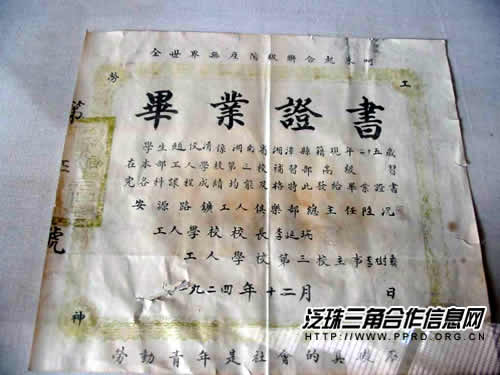 全世界無產階級聯合起來呵
勞 工
畢業證書
學生趙汉清係湖南省湘潭縣籍現年二十五歲
在本部工人學校第三校補習部高級 習
完各科課程成績均能及格特此發給畢業證書
安源路鑛工人俱樂部總主任陸沉
工人學校校長李延瑞
工人學校第三校主事李
一九二四年十二月 日
神
第
號
勞動青年是社會的真
泛珠三角合作信息网
WWW.PPRD.ORG.CN